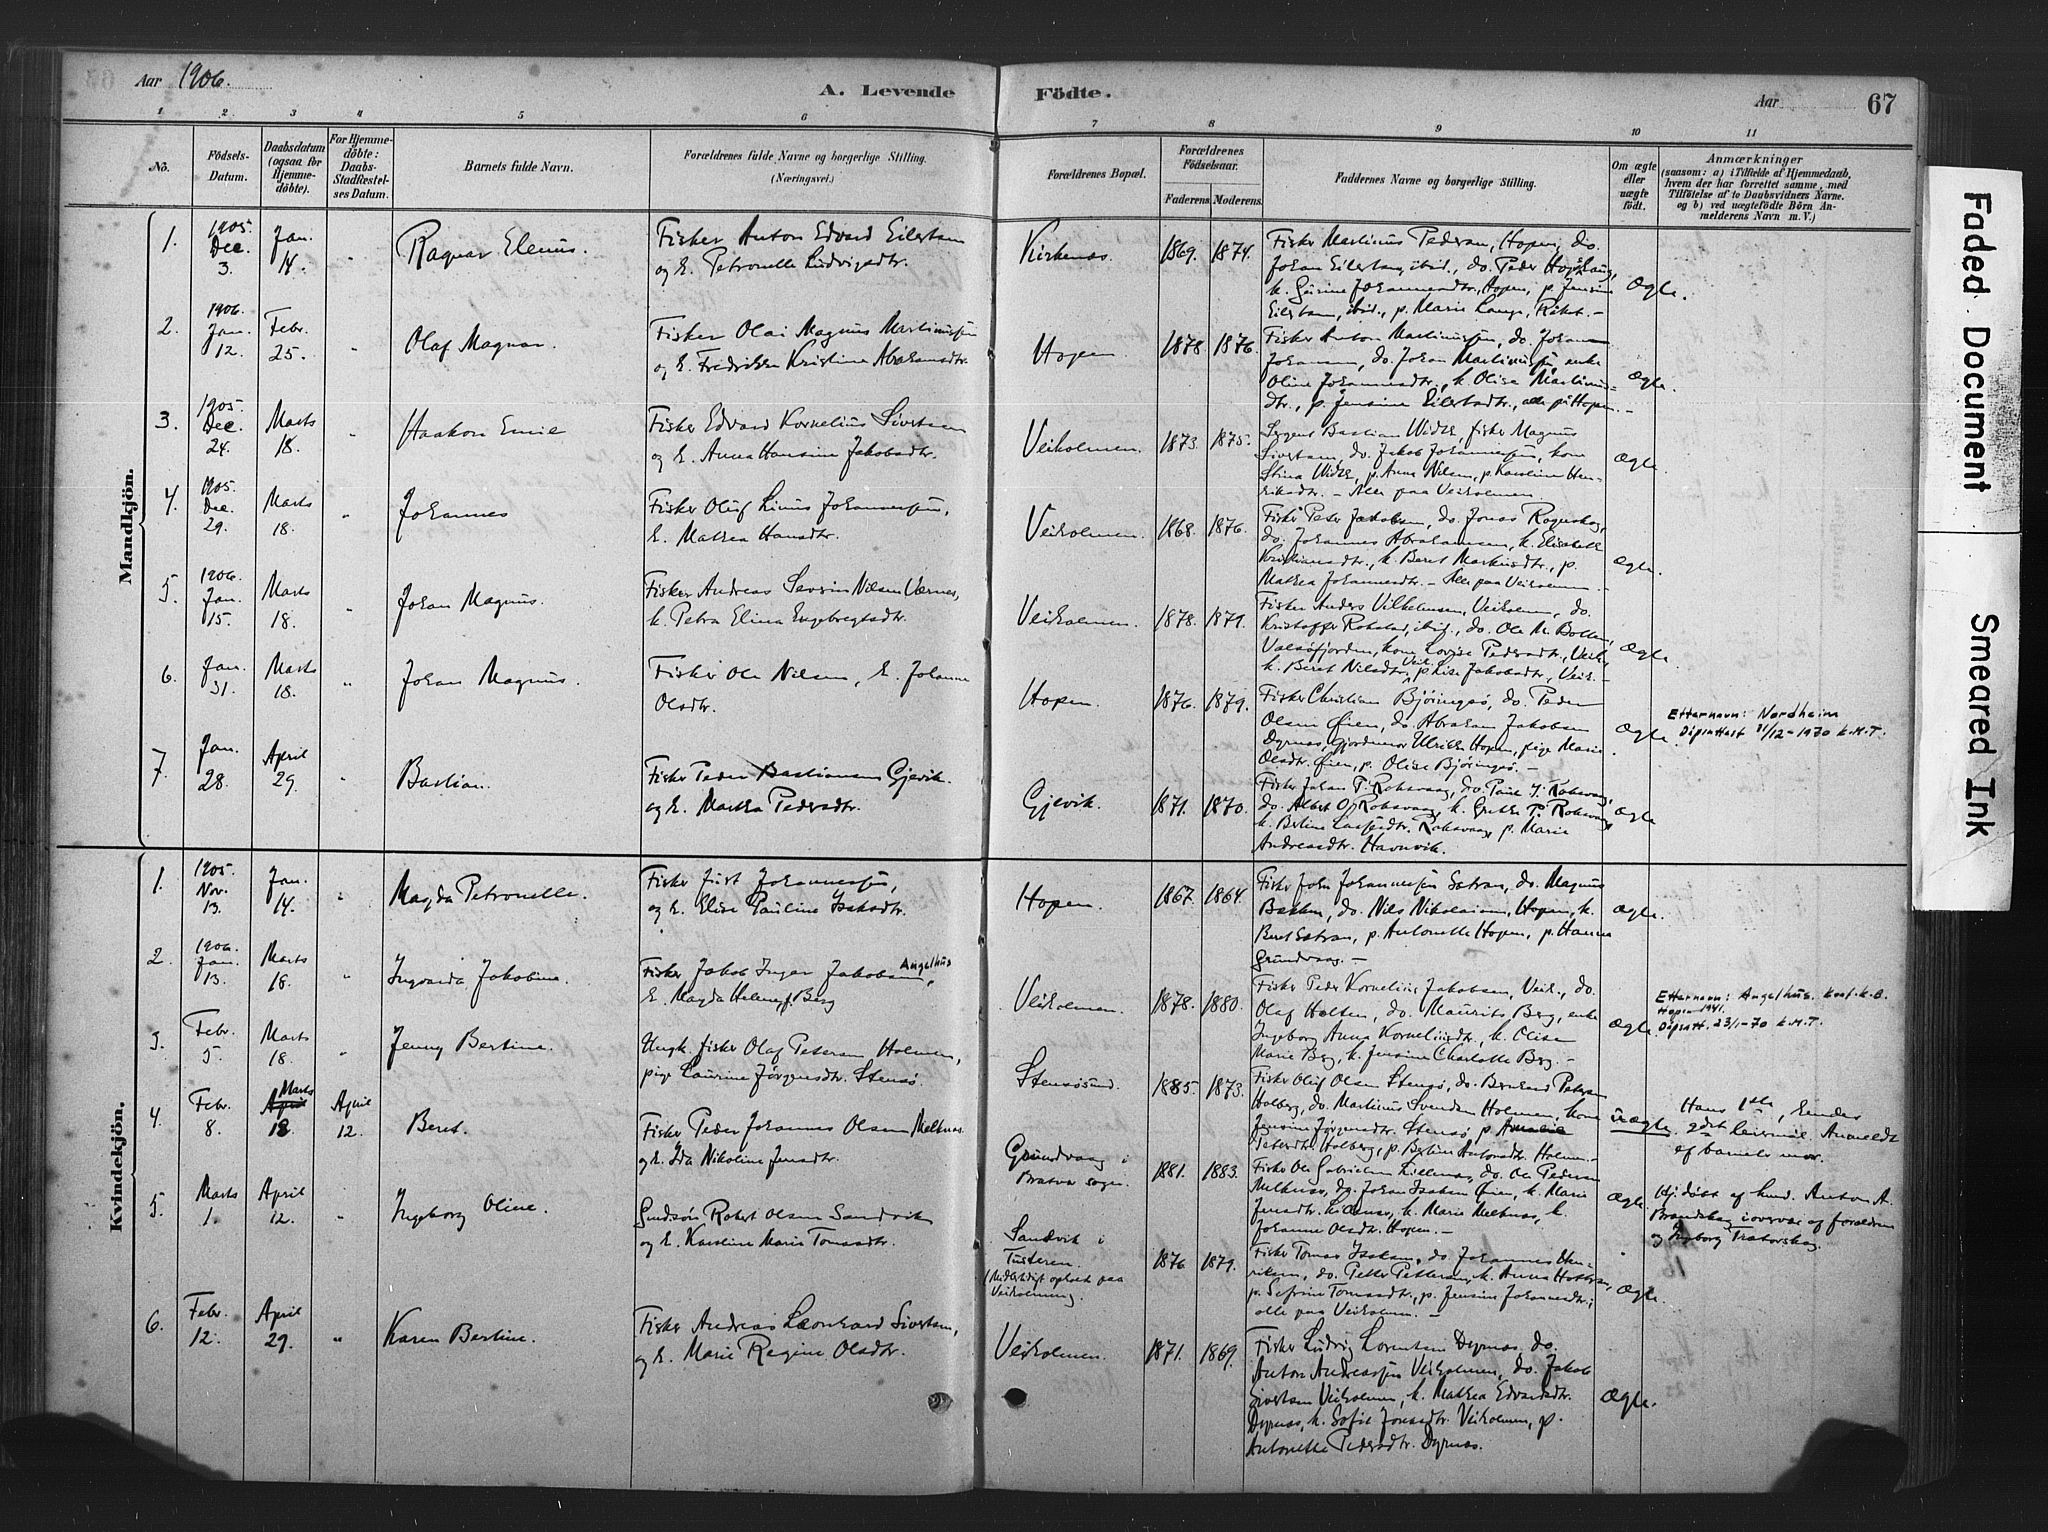 Aar 1906.
A. Levende
Födte.
Aar
67
1 2 3 4 5 6
7 8 9 10 11
No.
Födsels-
Datum.
Daabsdatum
(ogsaa for
Hjemme-
döbte).
For Hjemme-
döbte:
Daabs-
Stadfæstel-
ses Datum.
Barnets fulde Navn.
Forældrenes fulde Navne og borgerlige Stilling.
(Næringsvei.)
Forældrenes Bopæl.
Forældrenes
Födselsaar.
Faderens. Moderens.
Faddernes Navne og borgerlige Stilling.
Om ægte
eller
uægte
födt.
Anmærkninger
(saasom: a) i Tilfælde af Hjemmedaab,
hvem der har forrettet samme, med
Tilföielse af to Daabsvidners Navne.
og b) ved uægtefödte Börn An-
melderens Navn m. V.)
Mandkjön.
1.
1905.
Dec.
3.
Jan.
14.
Ragnar Elenus.
Fisker Anton Edvard Eilertsen
og H. Petronelle Ludvigsdtr.
Kirkenæs.
1869. 1874.
Fisker Martinus Pedersen, Hopen, do.
Johan Eilertsen, ibid., do. Peder
k. Gurine Johannesdtr., Hopen, p. Jensine
Eilertsen, ibid., p. Marie Lange,
Ægte.
2.
1906.
Jan.
12.
Febr.
25.
Olaf Magnar.
Fisker Olai Magnus Martinussen
og H. Fredrikke Kristine Abrahamsdtr.
Hopen
1878. 1876.
Fisker Anton Martinussen, do. Johan
Johansen, do. Johan Martinussen, enke
Oline Johannesdtr., k. Olise Martinus-
dtr., p. Jensine Eilertsdtr., alle på Hopen.
Ægte.
3.
1905.
Dec.
24.
Marts
18.
Haakon Emil
Fisker Edvard Kornelius Sivertsen
og H. Anna Hansine Jakobsdtr.
Veiholmen.
1873. 1875.
Sergent Bastian Width, fisker Magnus
Sivertsen, do. Jakob Johannessen, kone
Stina Width, p. Anna Nilsen, p. Karoline Hen-
riksdtr. - Alle paa Veiholmen.
Ægte.
4.
1905.
Dec.
29.
Marts
18.
Johannes
Fisker Oluf Linus Johannessen,
H. Mathea Hansdtr.
Veiholmen.
1868. 1876.
Fisker Peter Jakobsen, do. Jonas
do. Johannes Abrahamsen, k. Elisabeth
Kristiansdtr., k. Beret Markusdtr., p.
Mathea Johannesdtr. - Alle paa Veiholmen.
Ægte.
5.
1906.
Jan.
15.
Marts
18.
Johan Magnus.
Fisker Andreas Severin Nilsen Værnes,
k. Petra Elina Engebregtsdtr.
Veiholmen.
1878. 1879.
Fisker Anders Vilhelmsen, Veiholmen, do.
Kristoffer Rokstad, ibid., do. Ole M. Botten,
Valsøfjorden, kone Lovise Pedersdtr., Veih.,
k. Beret Nilsdtr., Veih. p. Lise Jakobsdtr., Veih.
Ægte.
6.
Jan.
31.
Marts
18.
Johan Magnus.
Fisker Ole Nilsen, H. Johanne
Olsdtr.
Hopen.
1876. 1879.
Fisker Christian Bjøringsø, do. Peder
Olsen Øien, do. Abraham Jakobsen
Dyrnes, gjordemor Ulrikke Hopen, pige Marie
Olsdtr. Øien, p. Olise Bjøringsø.
Ægte.
Etternavn: Nordheim
Dåpsattest 31/12-1970 K.M.T.
7.
Jan.
28.
April
29.
Bastian.
Fisker Peder Bastiansen Gjevik
og H. Marthe Pedersdtr.
Gjevik.
1871. 1870.
Fisker Johan P. Roksvaag, do. Paul J. Roksvaag,
do. Albert O. Roksvaag, k. Grethe P. Roksvaag,
k. Bertine Roksvaag, p. Marie
Andreasdtr. Havnvik.
Ægte
Kvindekjön.
1.
1905.
Nov.
13.
Jan.
14.
Magda Petronelle.
Fisker Just Johannessen,
og H. Elise Pauline Isaksdtr.
Hopen.
1867. 1864.
Fisker John Johannessen Sætran, do. Magnus
Bakken, do. Nils Nikolaisen, Hopen, k.
Beret Sætran, p. Antonette Hopen, p. Hanna
Grundvaag.
Ægte.
2.
1906.
Jan.
13.
Marts
18.
Ingvarda Jakobine.
Fisker Jakob Inger Jakobsen, Angelhus
H. Magda Helene f. Berg
Veiholmen.
1878. 1880.
Fisker Peder Kornelius Jakobsen, Veih., do.
Olaf Holten, do. Maurits Berg, enke
Ingeborg Anna Korneliusdtr., k. Olise
Marie Berg, k. Jensine Charlotte Berg.
Ægte.
Etternavn: Angelhus. Konf.k.b.
Hopen 1941.
Dåpsatt. 23/1-70 K.M.T.
3.
Febr.
5.
Marts
18.
Jenny Bertine.
Ungk. fisker Olaf Petersen Holmen,
pige Laurine Jørgensdtr. Stensø.
Stensøsund.
1885. 1873.
Fisker Oluf Olsen Stensø, do. Bernhard Petersen
Holberg, do. Martinus Svendsen Holmen, kone
Jensine Jørgensdtr. Stensø, p. Amalie
Petersdtr. Holberg, p. Bertine Antonsdtr. Holmen.
uægte.
Hans 1ste, hendes
2det leiermål. Anmeldt
af barnets mor.
4.
Febr.
8.
Marts
April
18.
April
12.
Beret.
Fisker Peder Johannes Olsen Melknæs
og H. Ida Nikoline Jensdtr.
Grundvaag i
Bratvær sogn.
1881. 1883.
Fisker Ole Gabrielsen Lillenæs, do. Ole Pedersen
Melknæs, do. Johan Isaksen Øien, k. Marie
Jensdtr. Lillenæs, k. Marie Melknæs, k.
Johanne Olsdtr. Hopen.
Ægte.
Hj. døbt af lund. Anton A.
Brandskag i overvær af forældrene
og Ingborg
5.
Marts
1.
April
12.
Ingeborg Oline.
Gmdsøn Robert Olsen Sandvik
og H. Karoline Marie Tomasdtr.
Sandvik i
Tusteren.
(Midlertidigt opholdt paa
Veiholmen).
1876 1879.
Fisker Tomas Isaksen, do. Johannes Hen-
riksen, do. Petter Pettersen, k. Anna Holten,
p. Sofrine Tomasdtr., p. Jensine Johannesdtr.,
alle paa Veiholmen.
Ægte.
16
6.
Febr.
12.
April
29.
Karen Bertine.
Fisker Andreas Leonhard Sivertsen,
og H. Marie Regine Olsdtr.
Veiholmen.
1871. 1869.
Fisker Ludvig Lorentsen Dyrnæs, do.
Anton Andreassen Veiholmen, do. Jakob
Sivertsen Veiholmen, k. Mathea Edvardsdtr.
Dyrnæs, k. Sofie Jonasdtr. Veiholmen, p.
Antonette Pedersdtr. Dyrnæs.
Ægte.
Faded Document
Smeared Ink